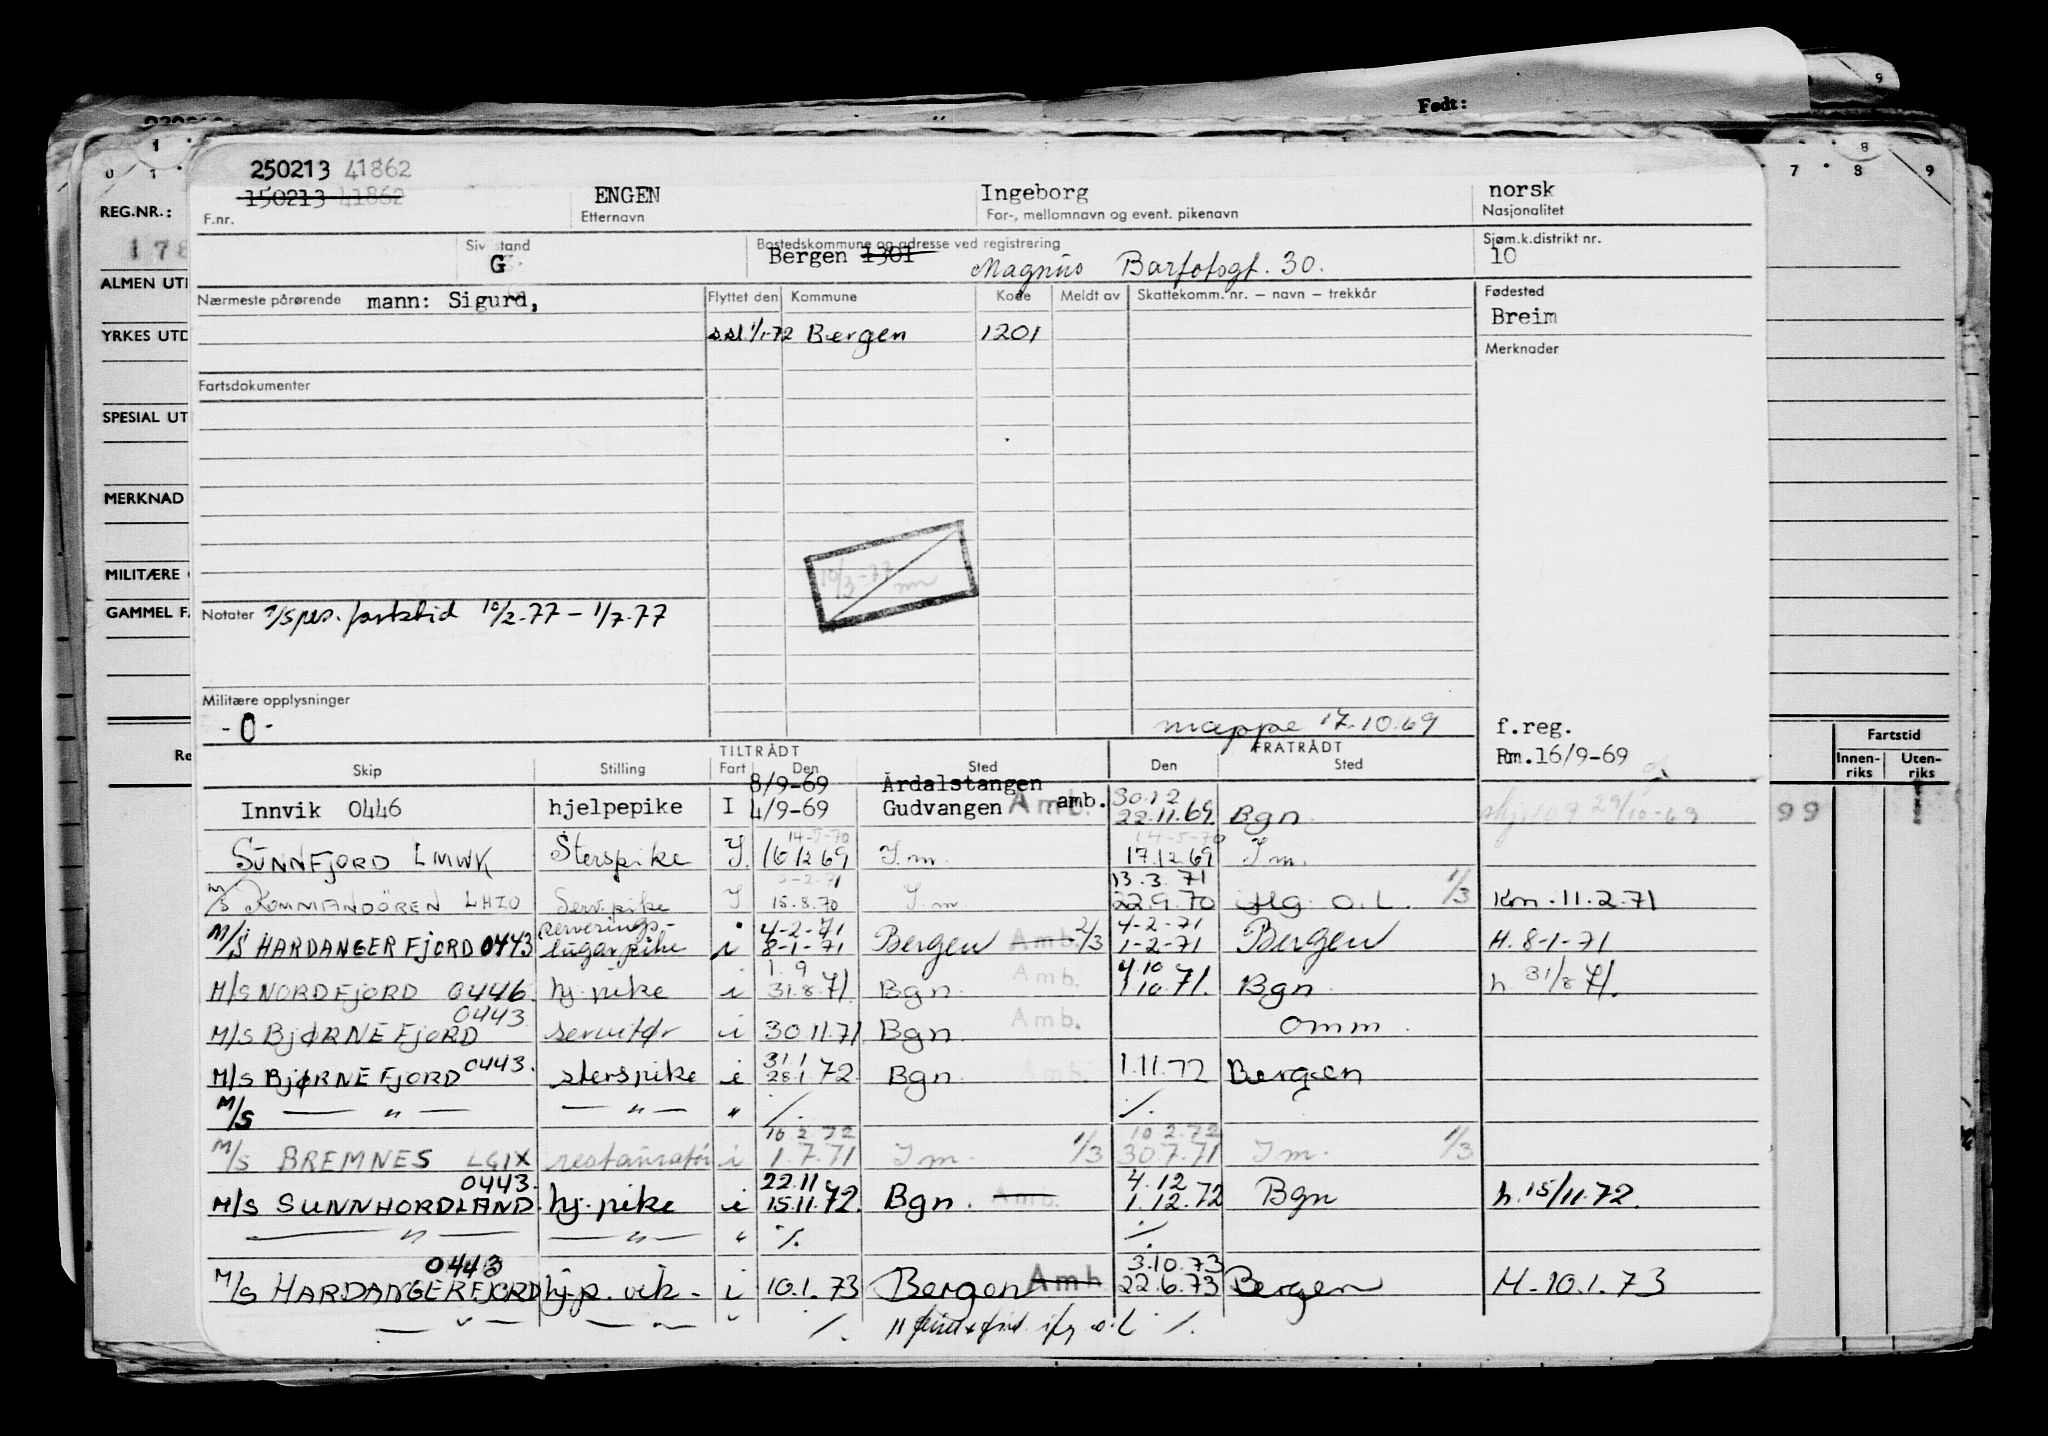 Født:
9
1
0 1
7 8 9
8
REG.NR.:
178
ALMEN UT
YRKES UTD
SPESIAL UT
MERKNAD
MILITÆRE
GAMMEL F
Re
Fartstid
Innen-riks Uten-riks
99
250213 41862
150213 41862 ENGEN Ingeborg norsk
F.nr. Etternavn For-, mellomnavn og event. pikenavn Nasjonalitet
Siv.stand Bostedskommune og adresse ved registrering Sjøm.k.distrikt nr.
G Bergen 1301 Magnus Barfotsgt. 30. 10
Nærmeste pårørende mann: Sigurd, Flyttet den Kommune Kode Meldt av Skattekomm. nr. – navn – trekkår Fødested
Breim
ssl 1/1-72 Bergen 1201
Merknader
Fartsdokumenter
10/3-77
Notater fartstid 10/2-77 – 1/7-77
Militære opplysninger
-0-
mappe 17.10.69 f.reg.
TILTRÅDT FRATRÅDT
Rm.16/9-69
Skip Stilling Fart Den Sted Den Sted
8/9-69 Årdalstangen 30.12
Innvik 0446 hjelpepike I 4/9-69 Gudvangen Amb. amb. 22.11.69. Bgn. 29/10-69
14-5-70 14-5-70
SUNNFJORD LMWK Sterspike I. 16/12 69 I.m. 17.12.69 I m.
5-2-71 13.3.71
M/S KOMMANDØREN LHZO Serv.pike I 15.8.70 I m 22.9.70 iflg. o.l. 1/3 Km. 11.2.71
serverings- 4-2-71 4-2-71
M/S HARDANGERFJORD 0443 lugarpike i 8-1-71 Bergen Amb. 2/3 1-2-71 Bergen H. 8-1-71
1.9 4.10
M/S NORDFJORD 0446. hj.pike i 31.8.71. Bgn. Amb. 1.10.71. Bgn. h 31/8 71.
0443
M/S BJØRNEFJORD servitør i 30.11.71 Bgn. Amb. omm.
31.1
M/S BJØRNEFJORD 0443. sterspike i 28.1 72. Bgn. Amb. 1.11.72 Bergen
M/S — " — — " — " ./. ./.
10.2.72 10.2.72
M/S BREMNES LGIX restauratør i 1.7.71 I m. 1/3 30.7.71 I m. 1/3
0443. 22.11 4.12
M/S SUNNHORDLAND. hj.pike i 15.11.72. Bgn. Amb. 1.12.72 Bgn h. 15/11.72.
— " — — " — " ./. ./.
0443 3.10.73
M/S HARDANGERFJORD hj.p. vik. i 10.1.73 Bergen Amb 22.6.73 Bergen H. 10.1.73
— " — — " — " ./. o.l ./.